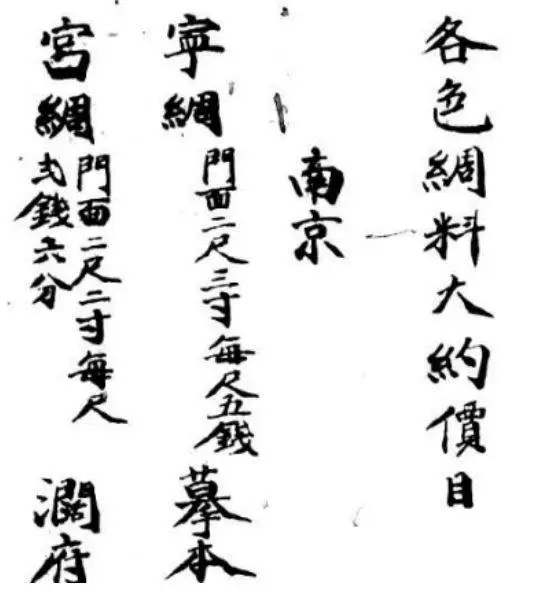 各色綢料大約價目
南京
寧綢 門面二尺三寸每尺五錢 摹本
宮綢 門面二尺二寸每尺弍錢六分 濶府